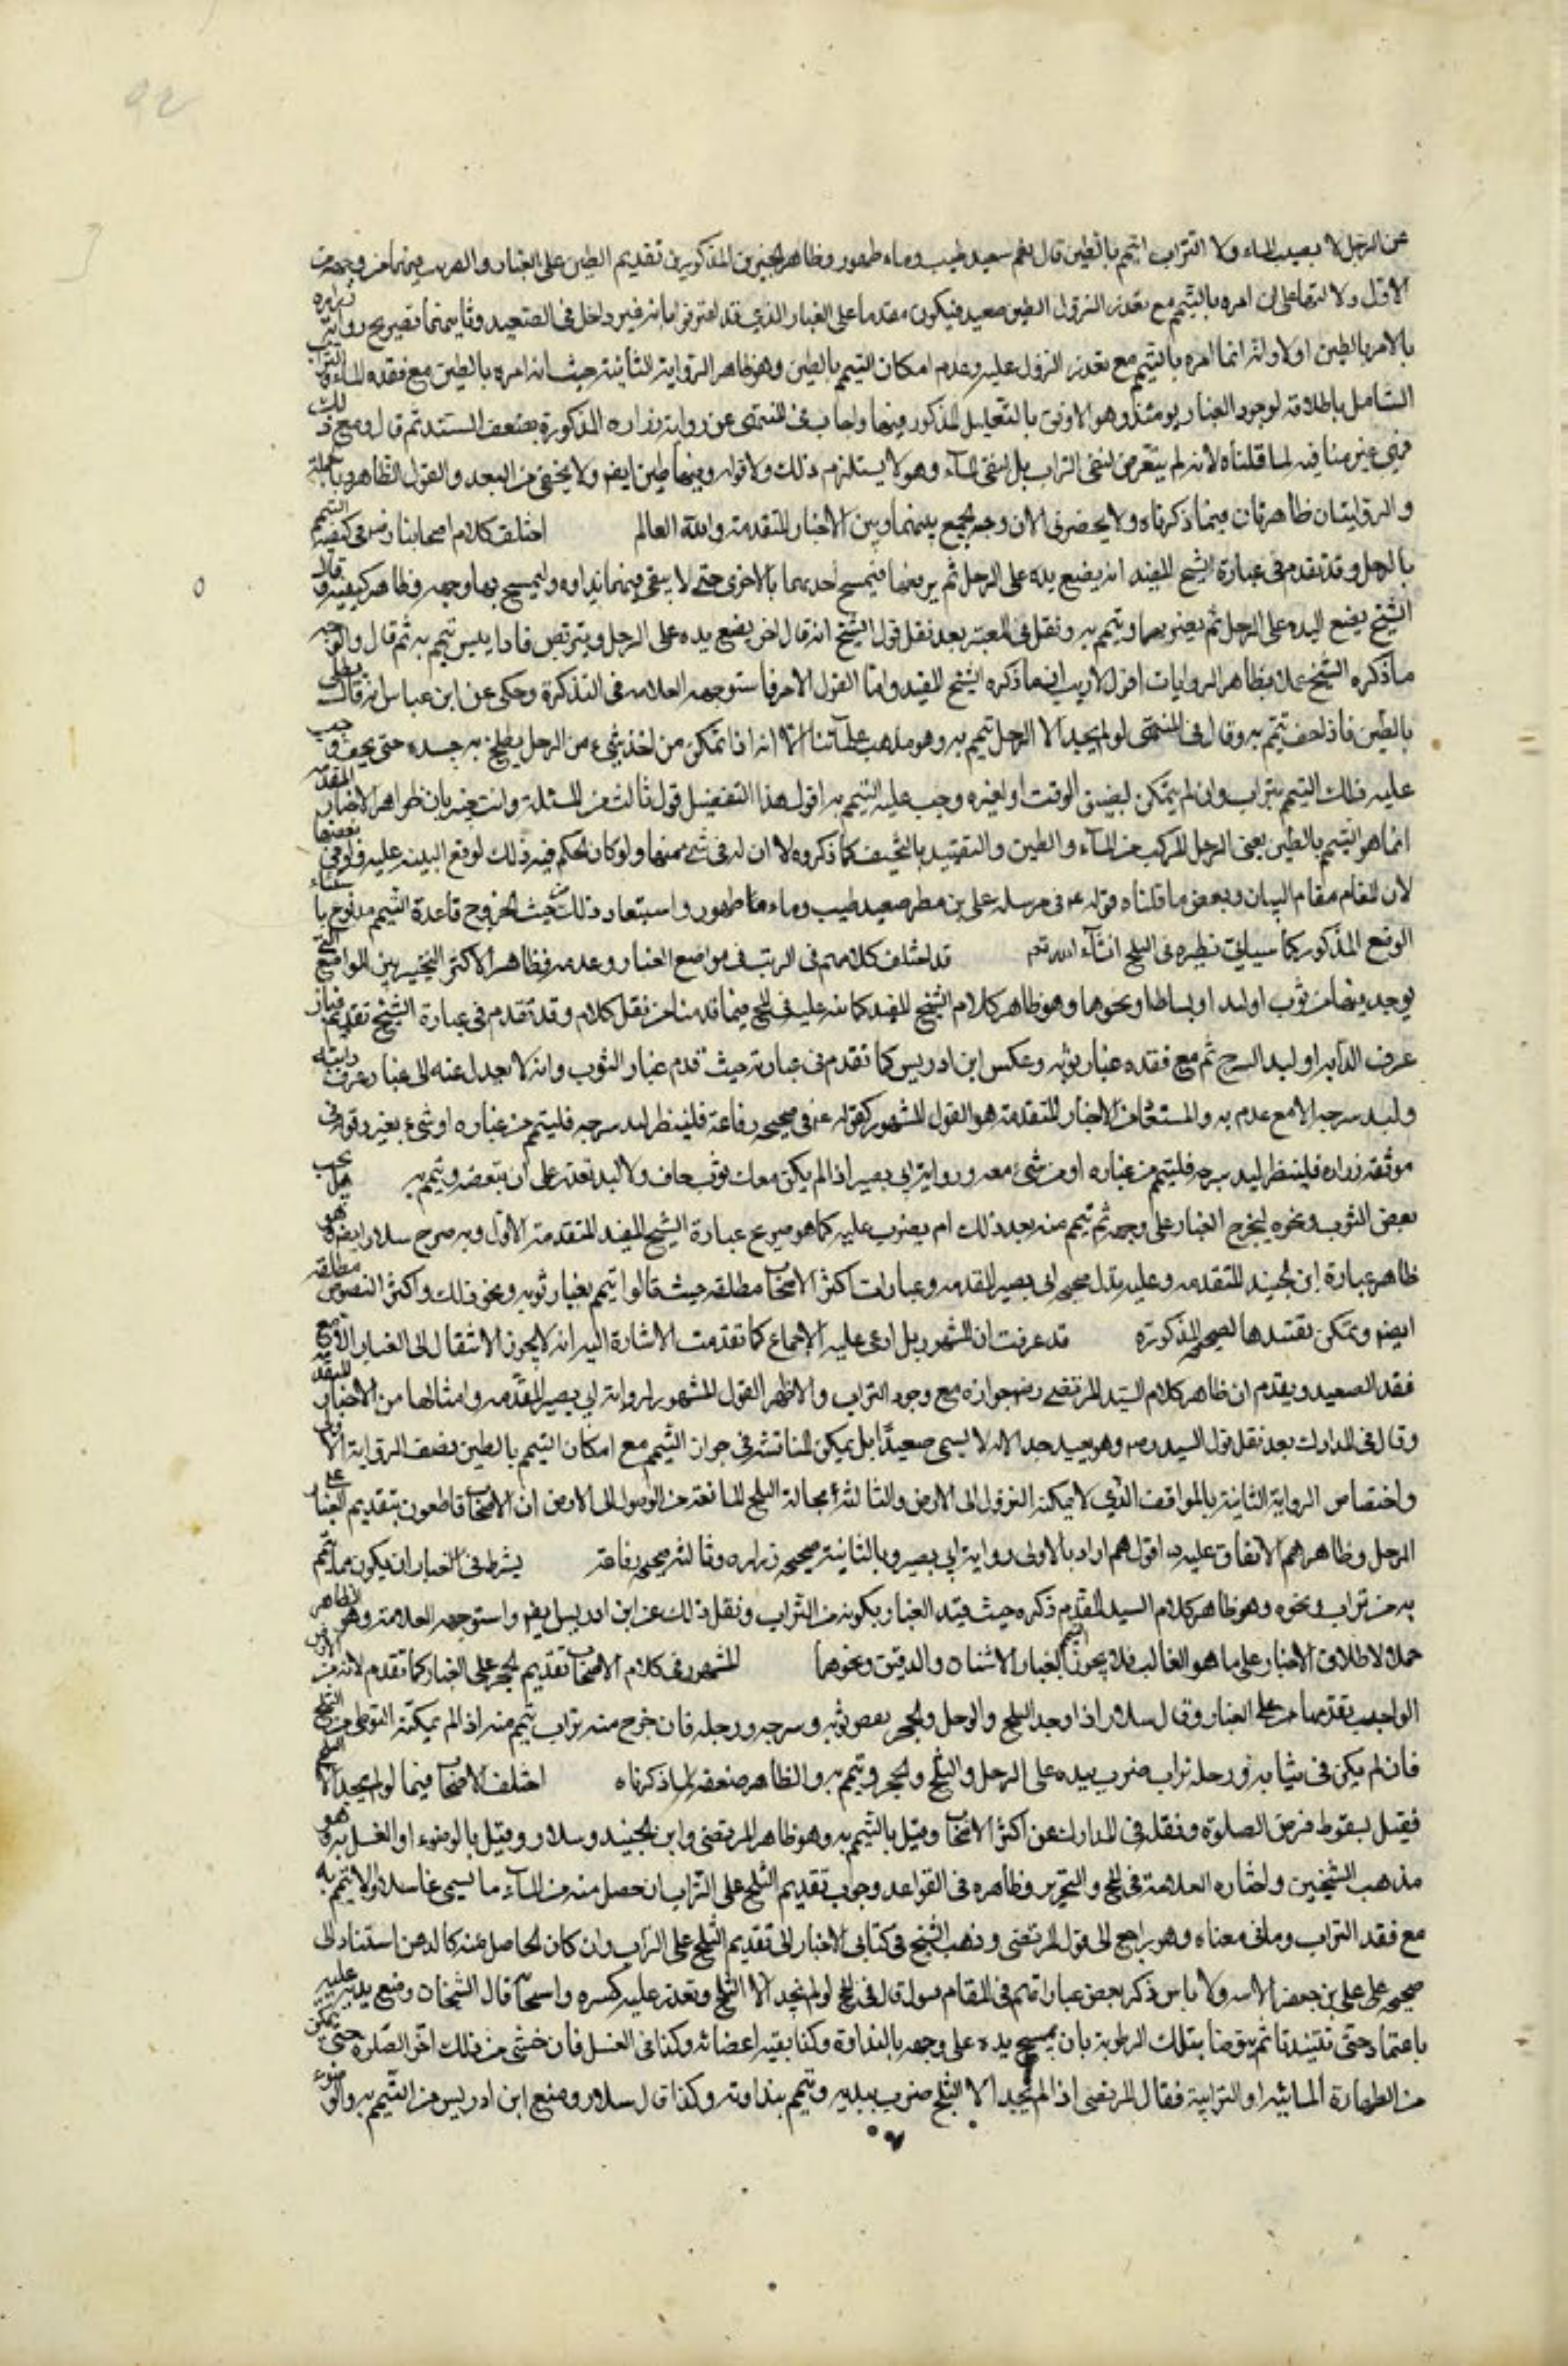 عن الرجل لا يصيب الماء ولا التراب ايتيمم بالطين قال نعم صعيد طيب وماء طهور وظاهر الخبرين المذكورين تقديم الطين على الغبار
الاول دلالتها على ان امره بالتيمم مع تعذر النزول الطين صعيد فيكون مقدما على الغبار الذي قد اعترفوا بانه غير داخل في الصعيد وثانيهما تصريح رواية زرارة
بالامر بالطين اولا وانه انما امره بالتيمم مع تعذر النزول عليه وعدم امكان التيمم بالطين وهو ظاهر الرواية الثانية حيث انه امره بالطين مع فقده الماء والتراب
الشامل باطلاقه لوجود الغبار يومئذ وهو الاوفق بالتعليل المذكور فيها واجاب في المنتهى عن رواية زرارة المذكورة بضعف السند ثم قال ومع ذلك
فهي غير منافية لما قلناه لانه لم يتعرض لنفي التراب بل لنفي الماء وهو لا يستلزم ذلك ولا قوله وفيها طين ايضا ولا يخفى من البعد والقول الظاهر وبالجملة
والروايتان ظاهرتان فيما ذكرناه ولا يحضرني الان وجه الجمع بينهما وبين الاخبار المتقدمة والله العالم اختلف كلام اصحابنا رض في كيفية التيمم
بالوحل وقد تقدم في عبارة الشيخ المفيد انه يضع يديه على الوحل ثم يرفعهما فيمسح احديهما بالاخرى حتى لا يبقى فيهما نداوه وليمسح بهما وجهه وظاهر كيفيته وقال
الشيخ يضع اليد على الوحل ثم يفركهما ويتيمم به ونقل في المعتبر بعد نقل قول الشيخ انه قال اخر يضع يده على الوحل ويتربص فاذا يبس تيمم به ثم قال والوجه
ماذكره الشيخ عملا بظاهر الروايات اقول لاريب انه ما ذكره الشيخ المفيد واما القول الاخر فاستوجهه العلامه في التذكرة وحكى عن ابن عباس انه قال يطلى
بالطين فاذا جف تيمم به وقال في المنتهى لو لم يجد الا الوحل تيمم به وهو مذهب علمائنا الا انه اذا تمكن من اخذ شيء من الوحل يطلخ به جسده حتى يجف وجب
عليه ذلك التيمم بتراب وان لم يتمكن لضيق الوقت او لغيره وجب عليه التيمم به اقول هذا التفضيل قول ثالث في المسئلة وانت خبير بان ظواهر الاخبار المتقدمه
انما هو التيمم بالطين يعني الوحل المركب من الماء والطين والتقييد بالتجفيف كما ذكروه لا اثر له في شي منها ولو كان الحكم فيه ذلك لوقع التنبيه عليه ولو في بعضها
لان المقام مقام البيان ويعضد ما قلناه قوله ع في مرسلة علي بن مطر صعيد طيب وماء طهور واستبعاد ذلك من حيث الخروج قاعدة التيمم مدفوع
الوقع المذكور كما سياتي نظيره في الثلج انشاء الله تعم قد اختلف كلامهم في الترتيب في مواضع الغبار وعدمه فظاهر الاكثر التخيير بين المواضع التي
يوجد فيها من ثوب او لبد او بساط او نحوها وهو ظاهر كلام الشيخ المفيد كما نبه عليه في المختلف فيما قدمنا من نقل كلام وقد تقدم في عبارة الشيخ تقديم غبار
عرف الدابه او لبد السرج ثم مع فقده غبار ثوبه وعكس ابن ادريس كما تقدم في عبارته حيث قدم غبار الثوب وانه لا يعدل عنه الى غبار عرف دابته
ولبد سرجه الا مع عدمه والمستفاد من الاخبار المتقدمة هو القول المشهور كقوله ع في صحيحة رفاعة فلينظر لبد سرجه فليتيمم من غباره او شيء مغبر وقوله في
موثقة زراره فلينظر لبد سرجه فليتيمم من غباره او من شيء معه ورواية ابي بصير اذا لم يكن معك ثوب جاف ولا لبد تقدر على ان تنفضه وتيمم به هل يجب
نفض الثوب ونحوه ليخرج الغبار على وجهه ثم يتيمم منه بعد ذلك ام يضرب عليه كما هو صريح عبارة الشيخ المفيد المتقدمة الاول وبه صرح سلار ايضا وهو
ظاهر عبارة ابن الجنيد المتقدمه وعليه تدل صحيحة ابي بصير المتقدمه وعبارات اكثر الاصحاب مطلقه حيث قالوا تيمم بغبار ثوبه ونحو ذلك واكثر النصوص مطلقه
ايضا ويمكن تقييدها بالصحيحة المذكوره قد عرفت ان المشهور بل ادعى عليه الاجماع كما تقدمت الاشارة اليه انه لا يجوز الانتقال الى الغبار الا مع
فقد الصعيد ويقدم ان ظاهر كلام السيد المرتضى رض جوازه مع وجود التراب والاظهر القول المشهور لرواية ابي بصير المتقدمه وامثالها من الاخبار المتقدمه
وقال في المدارك بعد نقل قول السيد ره وهو بعيد جدا لانه لا يسمى صعيدا بل يمكن المناقشة في جواز التيمم مع امكان التيمم بالطين لضعف الرواية الاولى
واختصاص الرواية الثانية بالمواقف الذي لا يمكنه النزول الى الارض والثالثة بحالة الثلج المانعة من الوصول الى الارض ان الاصحاب قاطعون بتقديم الغبار على
الوحل وظاهرهم الاتفاق عليه اقول هم اراد بالاولى رواية ابي بصير وبالثانية صحيحة زراره وثالثة صحيحه رفاعة يشترط في الغبار ان يكون مما يتيمم
به من تراب ونحوه وهو ظاهر كلام السيد المتقدم ذكره حيث قيد الغبار بكونه من التراب ونقل ذلك عن ابن ادريس ايضا واستوجهه العلامة وهو الظاهر
حملا لاطلاق الاخبار على ما هو الغالب فلا يجوز التيمم الغبار الاشنان والدقيق ونحوهما المشهور في كلام الاصحاب تقديم الحجر على الغبار كما تقدم لانه من الارض
الواجب تقديمها على الغبار وقال سلار اذا وجد الثلج والوحل والحجر نفض ثوبه وسرجه ورحله فان خرج منه تراب تيمم منه اذا لم يمكنه التوضي من الثلج
فان لم يكن في ثيابه ورحله تراب ضرب بيده على الوحل والثلج والحجر وتيمم به والظاهر ضعفه لما ذكرناه اختلف الاصحاب فيما لو لم يجد الا الثلج
فقيل بسقوط فرض الصلوة ونقله في المدارك عن اكثر الاصحاب وقيل بالتيمم به وهو ظاهر المرتضى وابن الجنيد وسلار وقيل بالوضوء او الغسل به وهو
مذهب الشيخين واختاره العلامة في المختلف والتحرير وظاهره في القواعد وجوب تقديم الثلج على التراب ان حصل منه من الماء ما يسمى غاسلا والا تيمم به
مع فقد التراب وما في معناه وهو راجع الى قول المرتضى وذهب الشيخ في كتابي الاخبار الى تقديم الثلج على التراب وان كان الحاصل عنه كالدهن استنادا الى
صحيحة علي بن جعفر الاتيه ولا باس بذكر بعض عباراتهم في المقام لو لم نجد الا الثلج وتعذر عليه كسره واسخانه قال الشيخان وضع يديه عليه
باعتماد حتى تنتديا ثم يتوضا بتلك الرطوبة بان يمسح يده على وجهه بالنداوة وكذا بقيه اعضائه وكذا في الغسل فان خشي من ذلك اخر الصلوة حتى يتمكن
من الطهارة المائيه او الترابية فقال المرتضى اذا لم يجد الا الثلج ضرب بيديه وتيمم بنداوته وكذا قال سلار ومنع ابن ادريس من التيمم به والوضوء